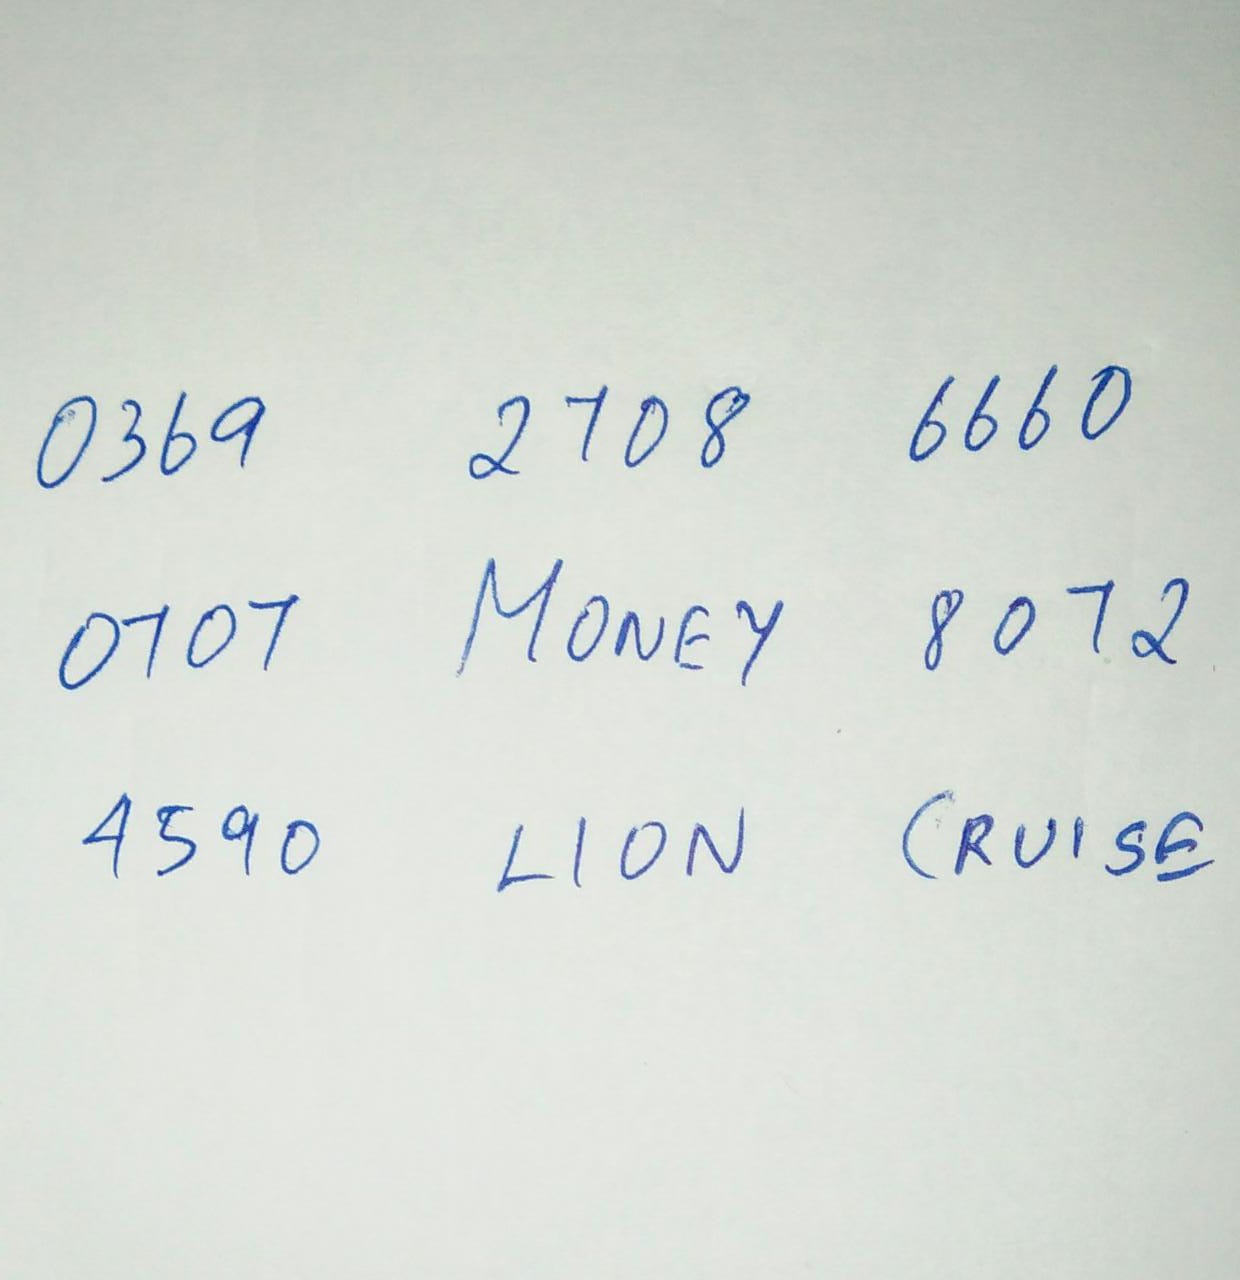 0369 2708 6660
0707 MONEY 8072
4590 LION CRUISE